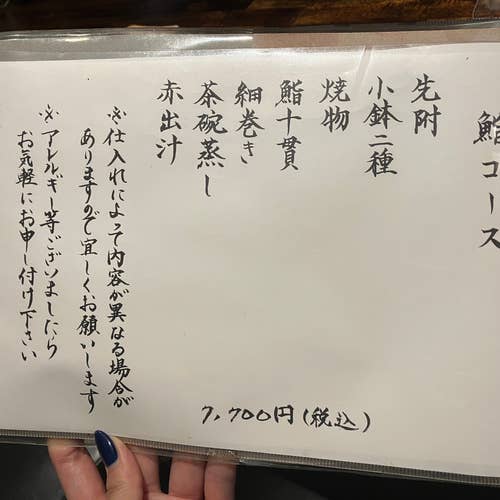 鮨コース
先附
小鉢二種
焼物
鮨十貫
細巻き
茶碗蒸し
赤出汁
※仕入れによって内容が異なる場合が
ありますので宜しくお願いします
※アレルギー等ございましたら
お気軽にお申し付け下さい
7,700円(税込)